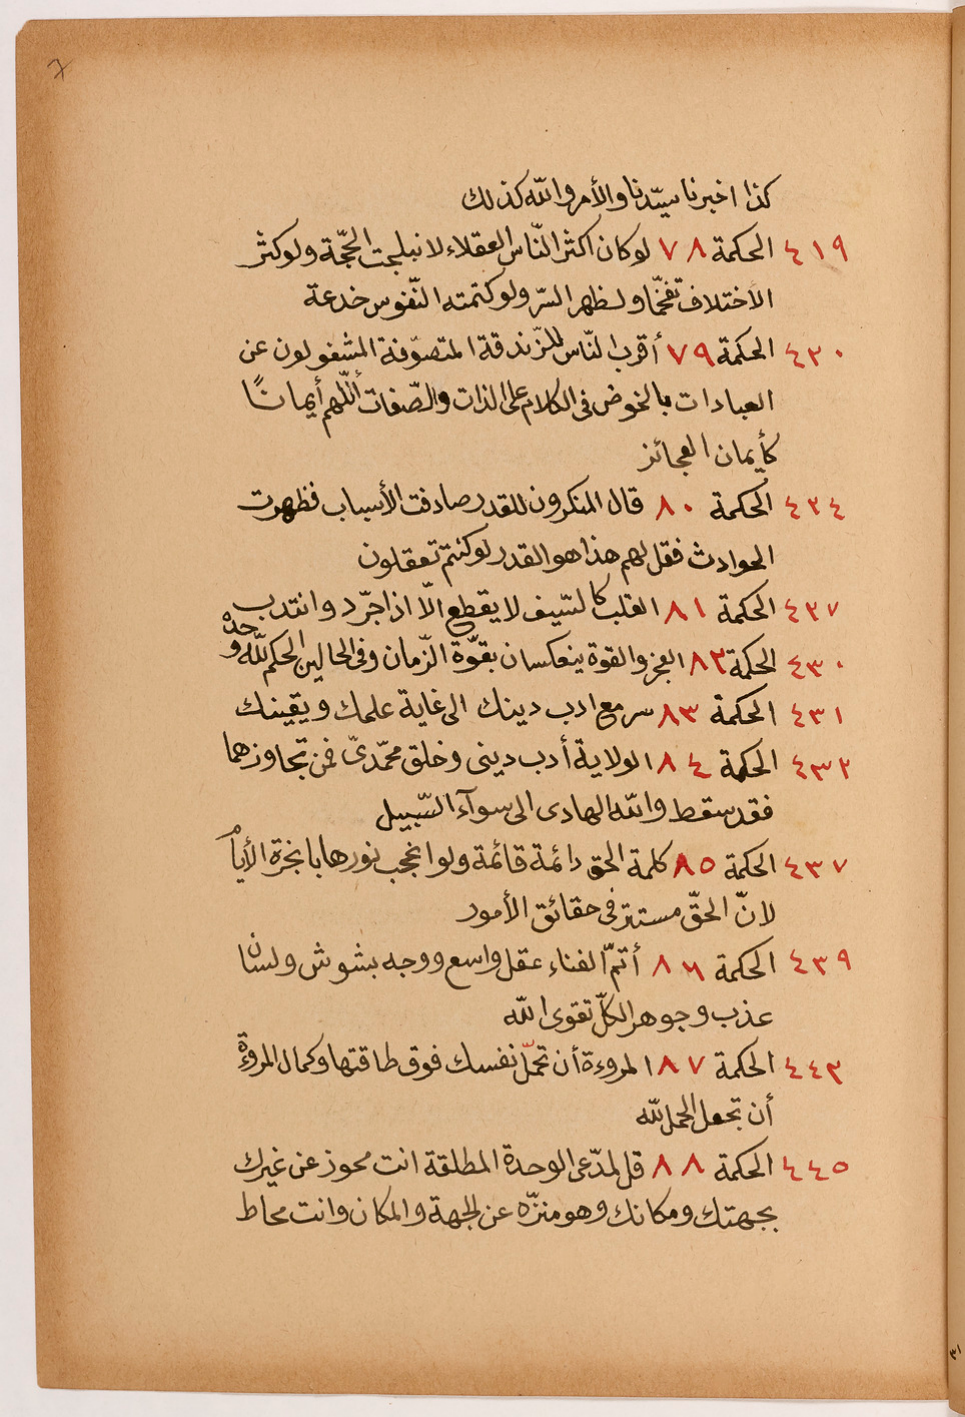 ٧
كذا اخبرنا سيّدنا والأمر والله كذلك
٤١٩ الحكمة ٧٨ لو كان اكثر النّاس العقلاء لانبلجت الحجّة ولو كثر
الاختلاف تفخّما ولظهر السّر ولو كتمته النّفوس خدعة
٤٢٠ الحكمة ٧٩ أقرب النّاس للزّندقة المتصوّفة المشغولون عن
العبادات بالخوض فى الكلام على الذات والصّفات أللّهم أيمانًا
كأيمان العجائز
٤٢٤ الحكمة ٨٠ قال المنكرون للقدر صادفت الأسباب فظهرت
الحوادث فقل لهم هذا هو القدر لو كنتم تعقلون
٤٢٧ الحكمة ٨١ القلب كالسّيف لا يقطع الّا اذا جرّد وانتدب
٤٣٠ الحكمة ٨٢ العجز والقوة ينعكسان بقوّة الزّمان وفى الحالين الحكم للّه وحده
٤٣١ الحكمة ٨٣ سر مع ادب دينك الى غاية علمك ويقينك
٤٣٢ الحكمة ٨٤ الولاية أدب دينى وخلق محمّدىّ فمن تجاوزهما
فقد سقط والله الهادى الى سوآء السّبيل
٤٣٧ الحكمة ٨٥ كلمة الحق دائمة قائمة ولو انحجب نورها بابخرة الأيام
لانّ الحقّ مستتر فى حقائق الأمور
٤٣٩ الحكمة ٨٦ أتمّ الغناء عقل واسع ووجه بشوش ولسان
عذب وجوهر الكلّ تقوى الله
٤٤٣ الحكمة ٨٧ المروءة أن تحمّل نفسك فوق طاقتها وكمال المروءة
أن تجعل الحمل للّه
٤٤٥ الحكمة ٨٨ قل لمدّعى الوحدة المطلقة انت محوز عن غيرك
بجهتك ومكانك وهو منزّه عن الجهة والمكان وانت محاط
٣١